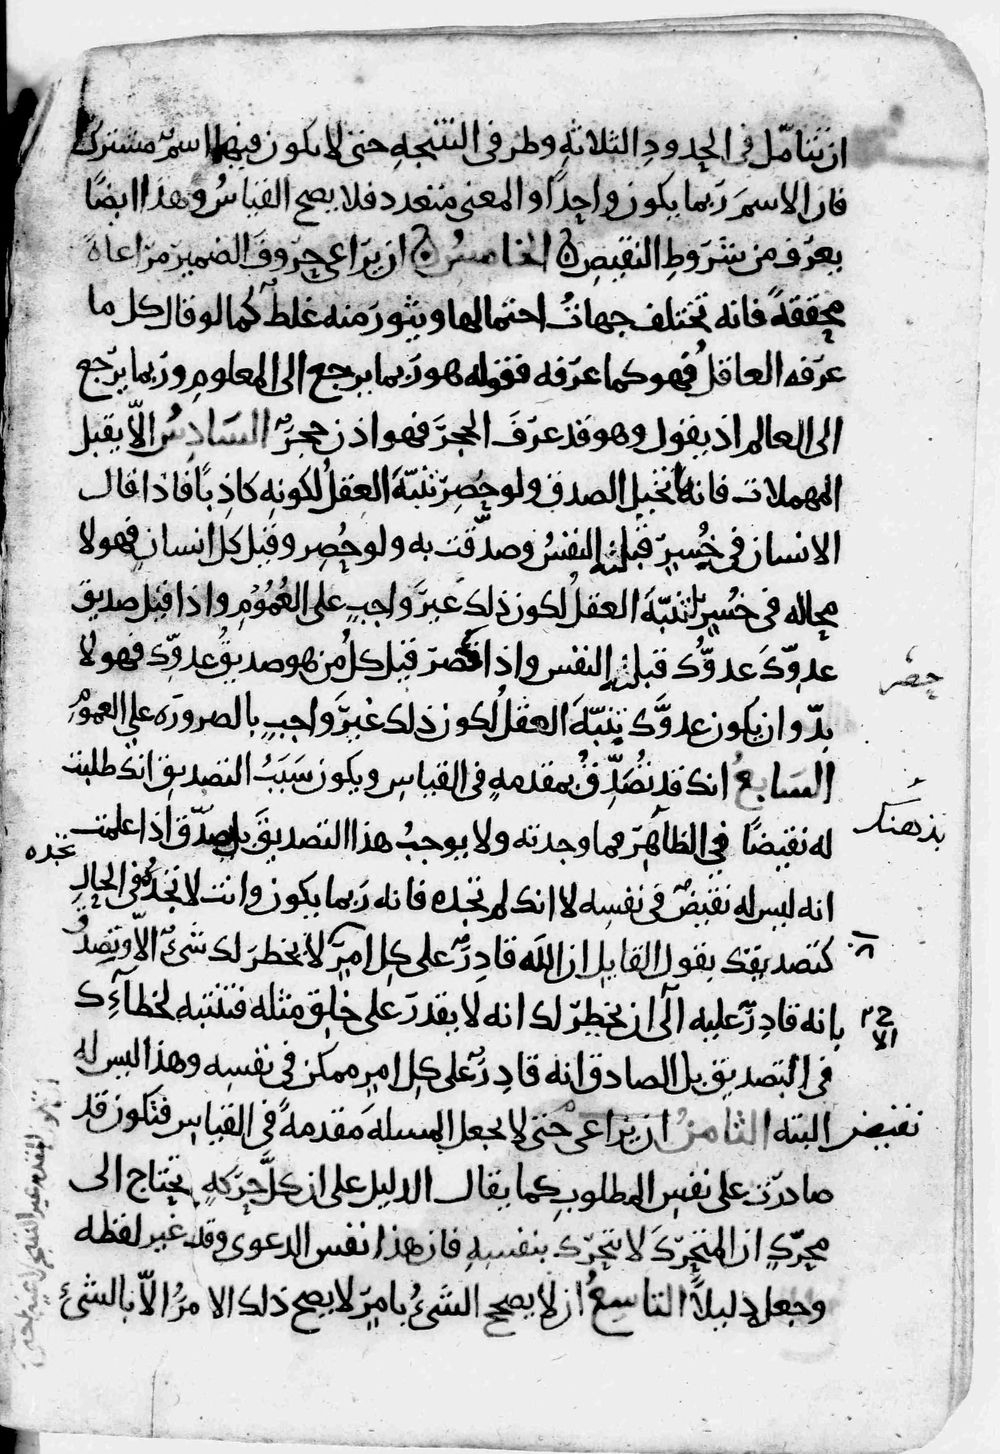 ان تتأمل في الحدود الثلاثة وطرفي النتيجة حتى لا يكون فيها اسم مشترك
فان الاسم ربما يكون واحدًا والمعنى متعدد فلا يصح القياس وهذا ايضًا
يعرف من شروط النقيض الخامس ان يراعى حروف الضمير مراعاة
محققةً فانه تختلف جهات احتمالها ويثور منه غلط كما لو قال كل ما
عرفه العاقل فهو كما عرفه فقوله هو ربما يرجع الى المعلوم وربما يرجع
الى العالم اذ يقول وهو قد عرف الحجر فهو اذن حجر السادس الّا يقبل
المهملات فانها تخيل الصدق ولو حصر تنبّه العقل لكونه كاذبًا فاذا قال
الانسان في خسر قبلته النفس وصدّقت به ولو حصر وقيل كل انسان فهو لا
محاله في خسر تنبّه العقل لكون ذلك غير واجب على العموم واذا قيل صديق
عدوّك عدوّك قبلته النفس واذا حصر قيل كل من هو صديق عدوّك فهو لا
بدّ وان يكون عدوّك تنبّه العقل لكون ذلك غير واجب بالضروره على العموم
السابع انك قد تصدّق بمقدمه في القياس ويكون سبب التصديق انك طلبت
له نقيضًا في الظاهر فما وجدته ولا يوجب هذا التصديق بل صدّق اذا علمت
انه ليس له نقيض في نفسه لا انك لم تجده فانه ربما يكون وانت لا تجده في الحال
كتصديقك بقول القايل ان الله قادر على كل امر لا يخطر لك شئ الّا وتصدق
بانه قادر عليه الّى ان يخطر لك انه لا يقدر على خلق مثله فتتنبه لخطآءك
في التصديق بل الصادق انه قادر على كل امر ممكن في نفسه وهذا ليس له
نقيض البته الثامن ان يراعى حتى لا يجعل المسله مقدمةً في القياس فتكون قد
صادرت على نفس المطلوب كما يقال الدليل على ان كل حركه تحتاج الى
محرّك ان المتحرّك لا يتحرّك بنفسه فان هذا نفس الدعوى وقد غير لفظه
وجعل دليلًا التاسع ان لا يصحح الشئ بامر لا يصح ذلك الامر الّا بالشئ
حصر
بذهنك
تجده